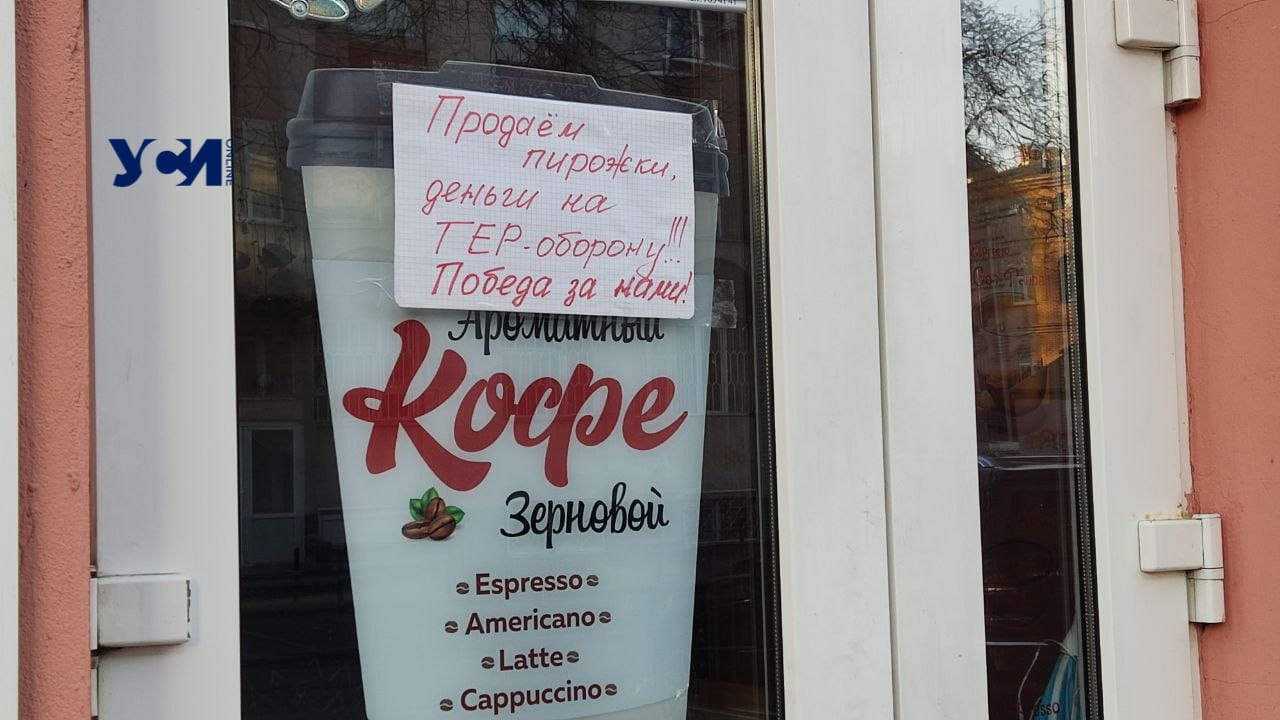 УСИ
ONLINE
Продаём
пирожки,
деньги на
ТЕР-оборону!!!
Победа за нами!
Ароматный
Кофе
Зерновой
Espresso
Americano
Latte
Cappuccino